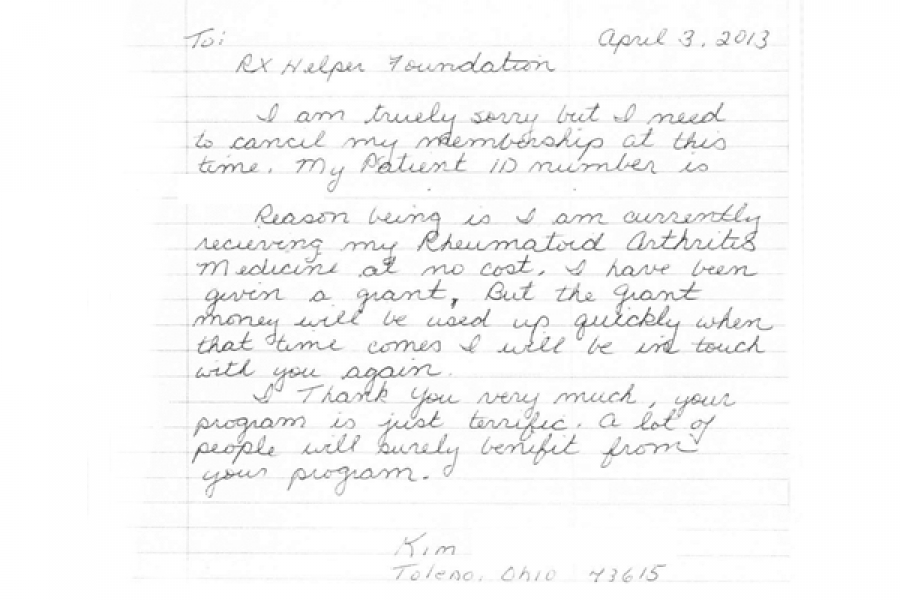 To:
April 3, 2013
RX Helper Foundation
I am truely sorry but I need
to cancil my membership at this
time. My Patient ID number is
Reason being is I am currently
recieving my Rheumatoid Arthritis
Medicine at no cost. I have been
givin a grant, But the grant
money will be used up quickly when
that time comes I will be in touch
with you again.
I Thank you very much, your
program is just terrific. A lot of
people will surely benifit from
your program.
Kim
Toledo, Ohio 43615